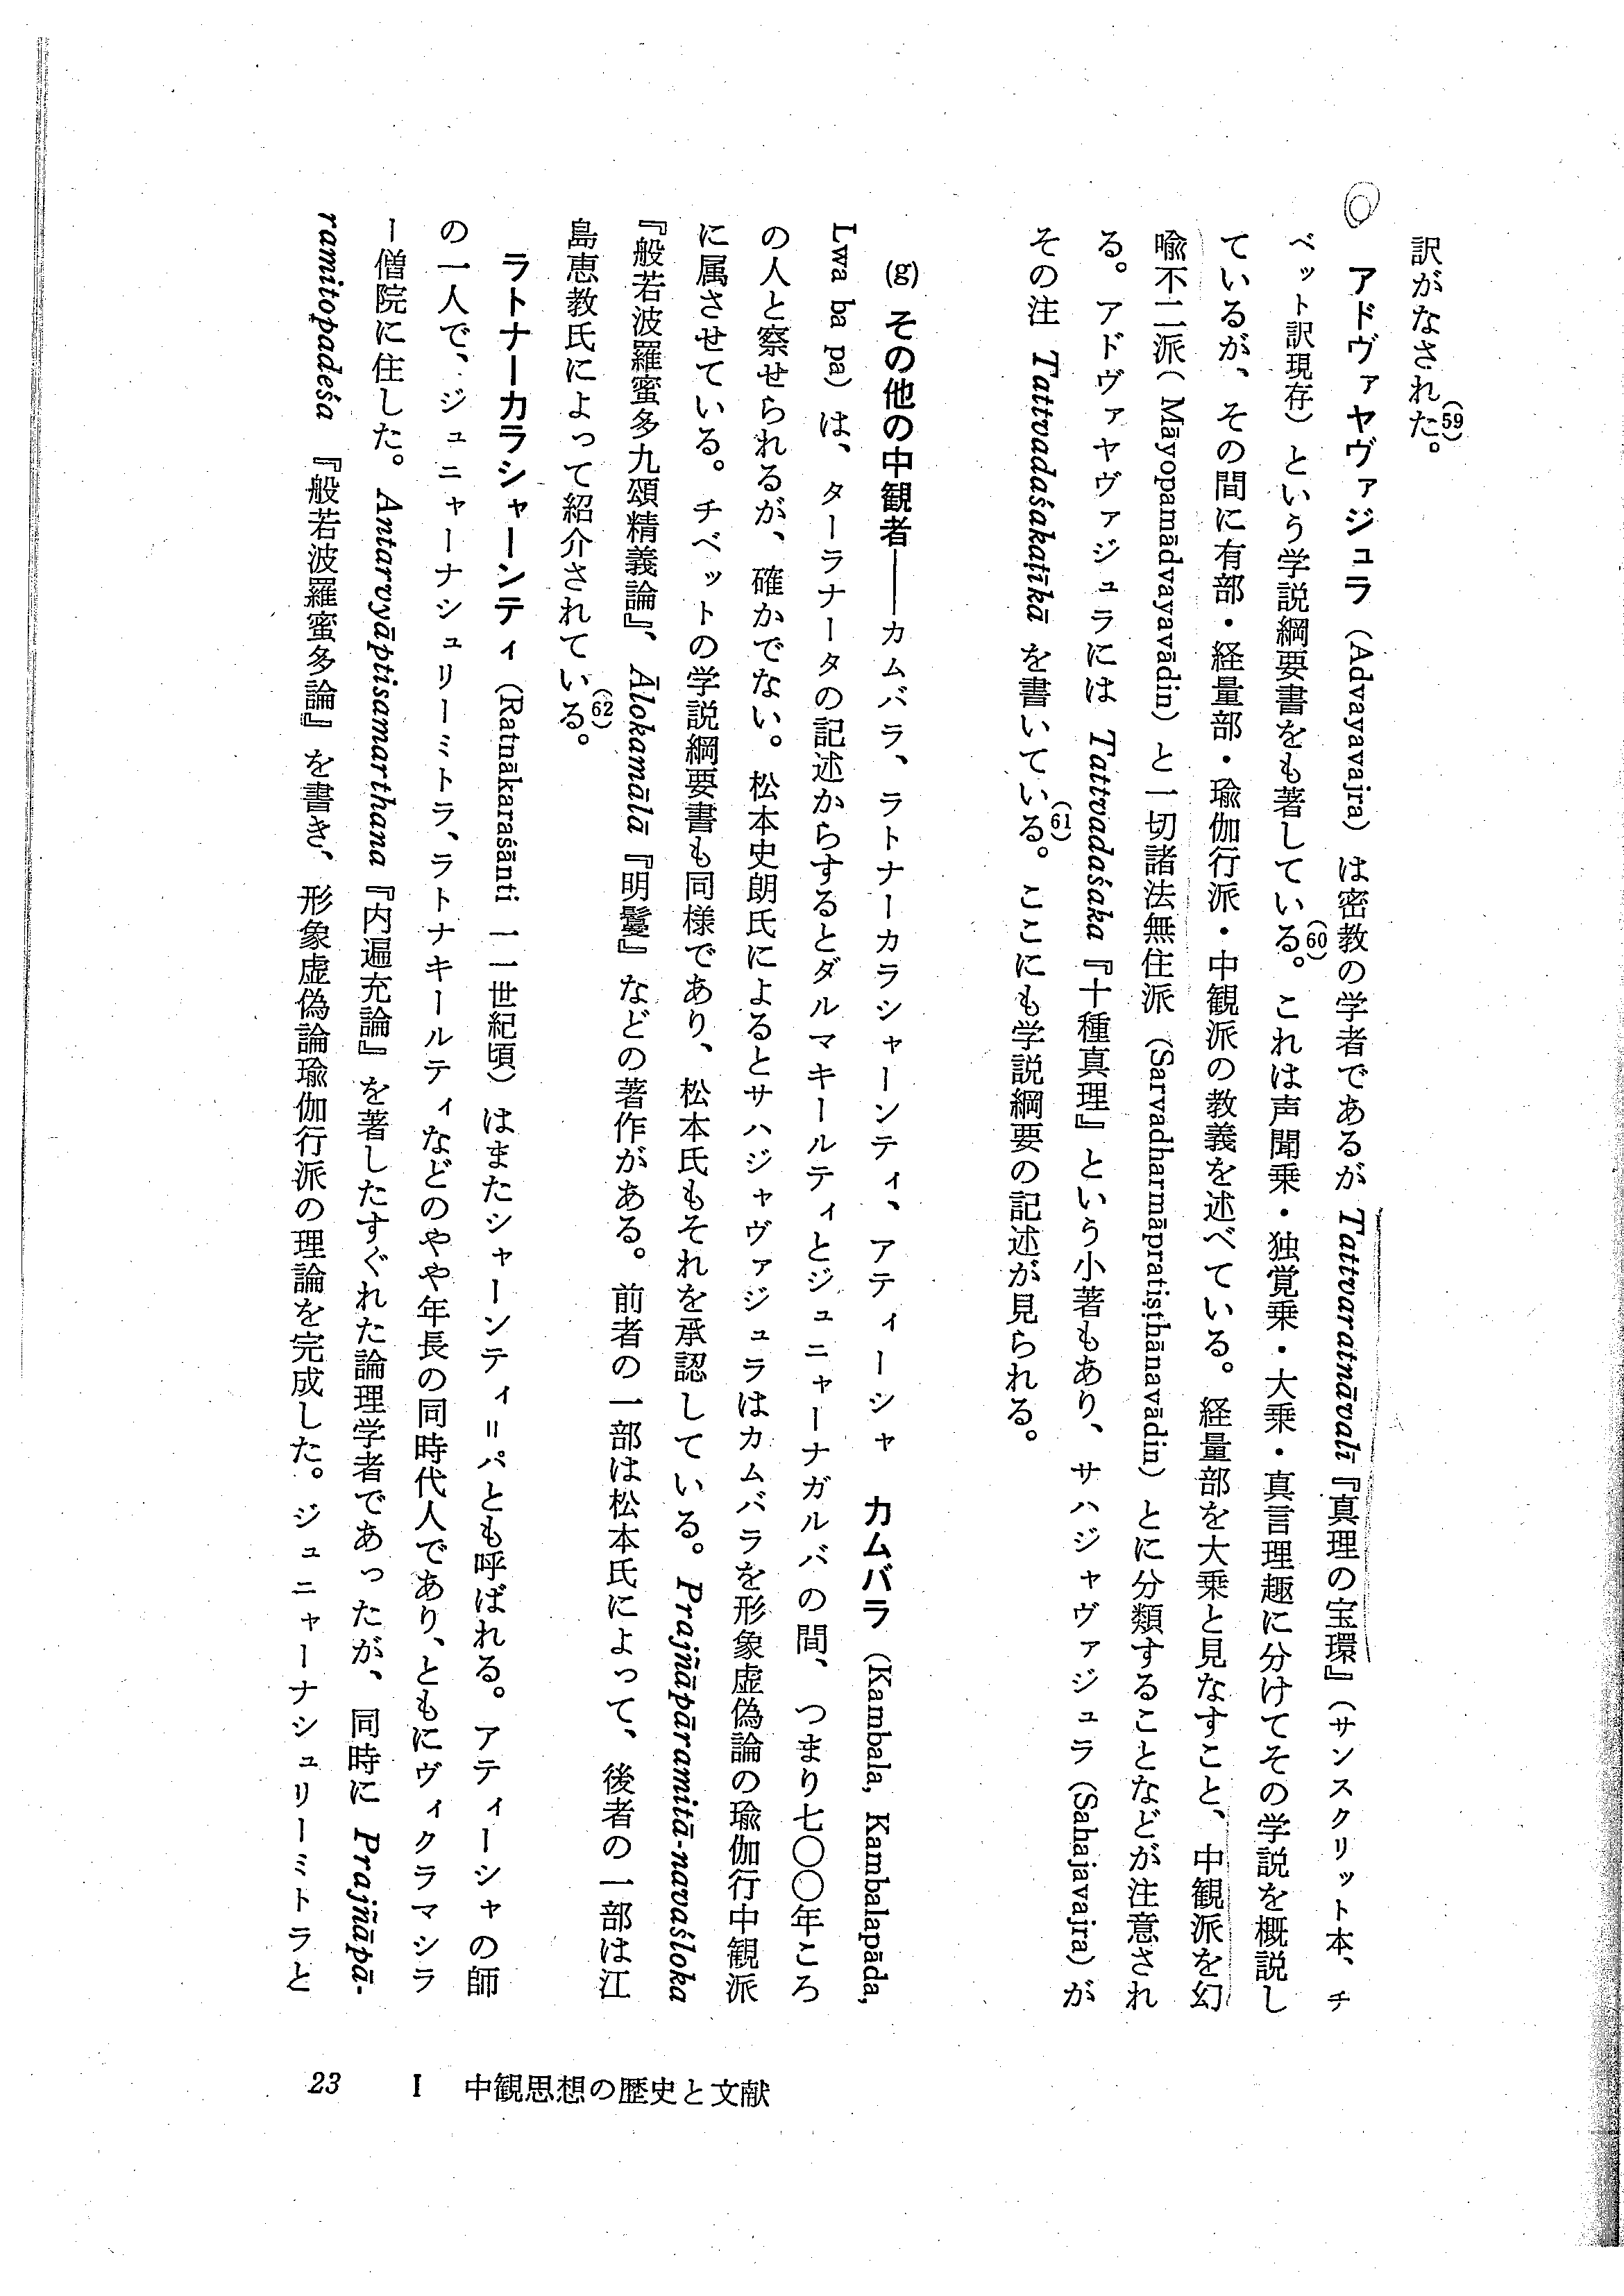 訳がなされた。(59)
アドヴァヤヴァジュラ（Advayavajra）は密教の学者であるが Tattvaratnāvalī『真理の宝環』（サンスクリット本、チ
ベット訳現存）という学説綱要書をも著している。(60)これは声聞乗・独覚乗・大乗・真言理趣に分けてその学説を概説し
ているが、その間に有部・経量部・瑜伽行派・中観派の教義を述べている。経量部を大乗と見なすこと、中観派を幻
喩不二派（Māyopamādvayavādin）と一切諸法無住派（Sarvadharmāpratiṣṭhānavādin）とに分類することなどが注意され
る。アドヴァヤヴァジュラには Tattvadaśaka『十種真理』という小著もあり、サハジャヴァジュラ（Sahajavajra）が
その注 Tattvadaśakaṭīkā を書いている。(61)ここにも学説綱要の記述が見られる。
(g) その他の中観者――カムバラ、ラトナーカラシャーンティ、アティーシャ　カムバラ（Kambala, Kambalapāda,
Lwa ba pa）は、ターラナータの記述からするとダルマキールティとジュニャーナガルバの間、つまり七〇〇年ころ
の人と察せられるが、確かでない。松本史朗氏によるとサハジャヴァジュラはカムバラを形象虚偽論の瑜伽行中観派
に属させている。チベットの学説綱要書も同様であり、松本氏もそれを承認している。Prajñāpāramitā-navaśloka
『般若波羅蜜多九頌精義論』、Ālokamālā『明鬘』などの著作がある。前者の一部は松本氏によって、後者の一部は江
島恵教氏によって紹介されている。(62)
ラトナーカラシャーンティ（Ratnākaraśānti 一一世紀頃）はまたシャーンティ＝パとも呼ばれる。アティーシャの師
の一人で、ジュニャーナシュリーミトラ、ラトナキールティなどのやや年長の同時代人であり、ともにヴィクラマシラ
ー僧院に住した。Antarvyāptisamarthana『内遍充論』を著したすぐれた論理学者であったが、同時に Prajñāpā-
ramitopadeśa『般若波羅蜜多論』を書き、形象虚偽論瑜伽行派の理論を完成した。ジュニャーナシュリーミトラと
23　I　中観思想の歴史と文献